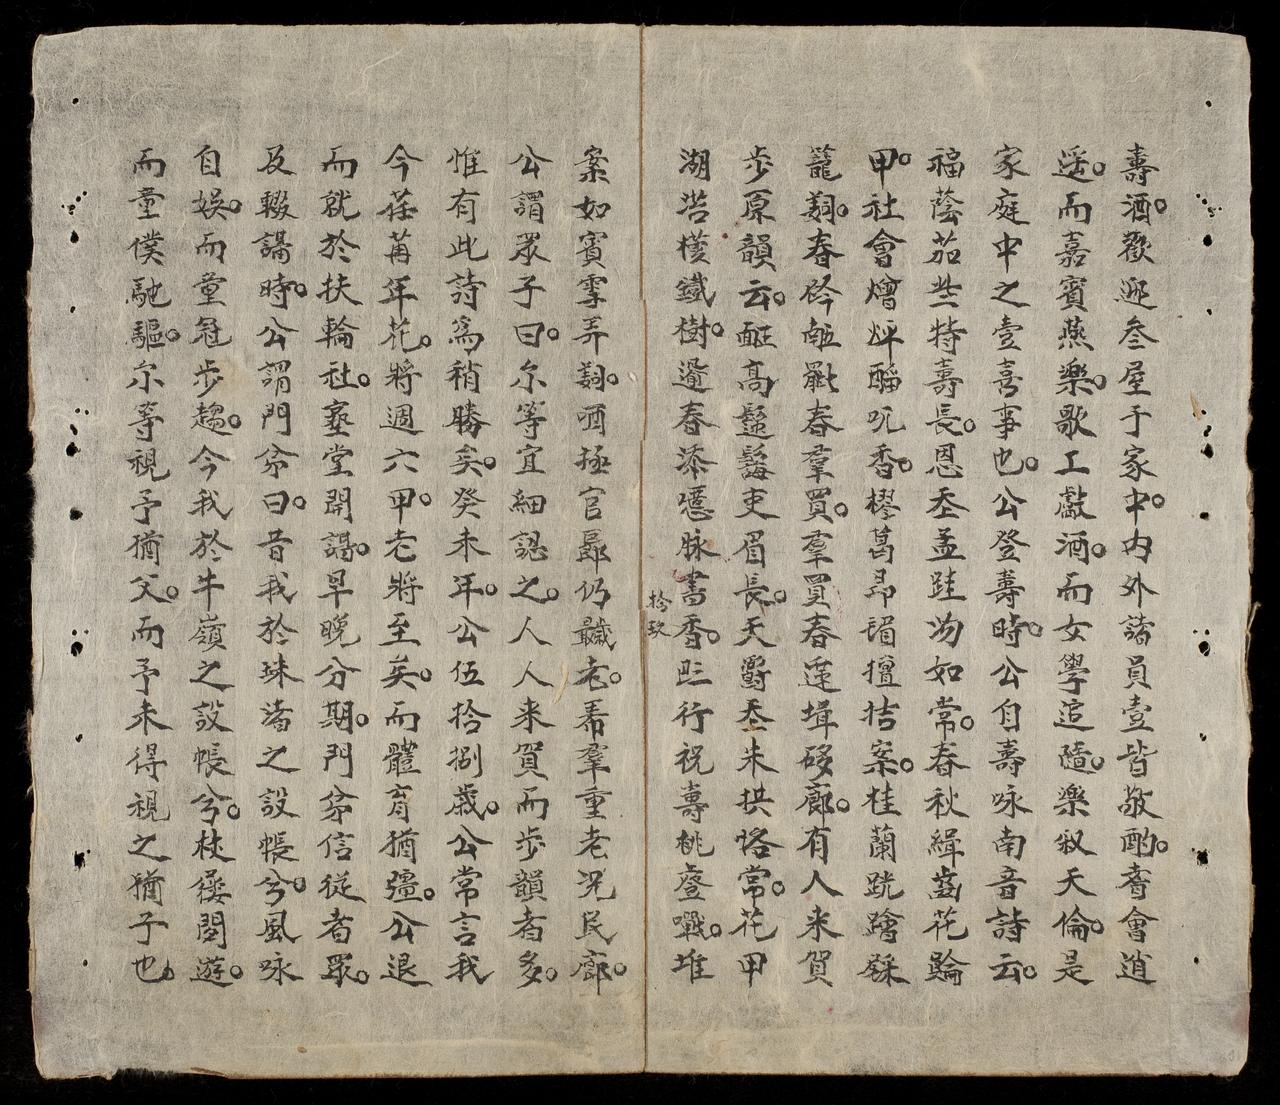 壽酒歡迎叁屋于家中内外諸員壹皆敬酌耆會逍
遥而嘉賓燕樂歌工獻酒而女學追隨樂叙天倫是
家庭中之壹喜事也公登壽時公自壽咏南音詩云
福蔭茄些特壽長恩丕孟跬沕如常春秋緝齒花
甲社會燴坪醑呪香樛葛昻堳擅拮案桂蘭跣
籠春群買群買春蓮堆廊有人来賀
步原韻云高髭吏眉長天爵丕朱拱咯常花甲
湖撘樣鐵樹邊春添脉書香行祝壽桃堆
拾玖
案如賓雪弄極官仍老群重老况民廊
公謂眾子曰尔等宜細認之人人来賀而步韻者多
惟有此詩爲稍勝矣癸未年公伍拾捌歲公常言我
今荏苒年花將週六甲老將至矣而體育猶彊公退
而就於扶輪社塾堂開講早晚分期門弟信從者眾
及輟講時公謂門弟曰昔我於珠渚之設帳兮風咏
自娱而童冠步趨今我於牛嶺之設帳兮杖屨閒遊
而童僕馳驅尔等視予猶父而予未得視之猶子也